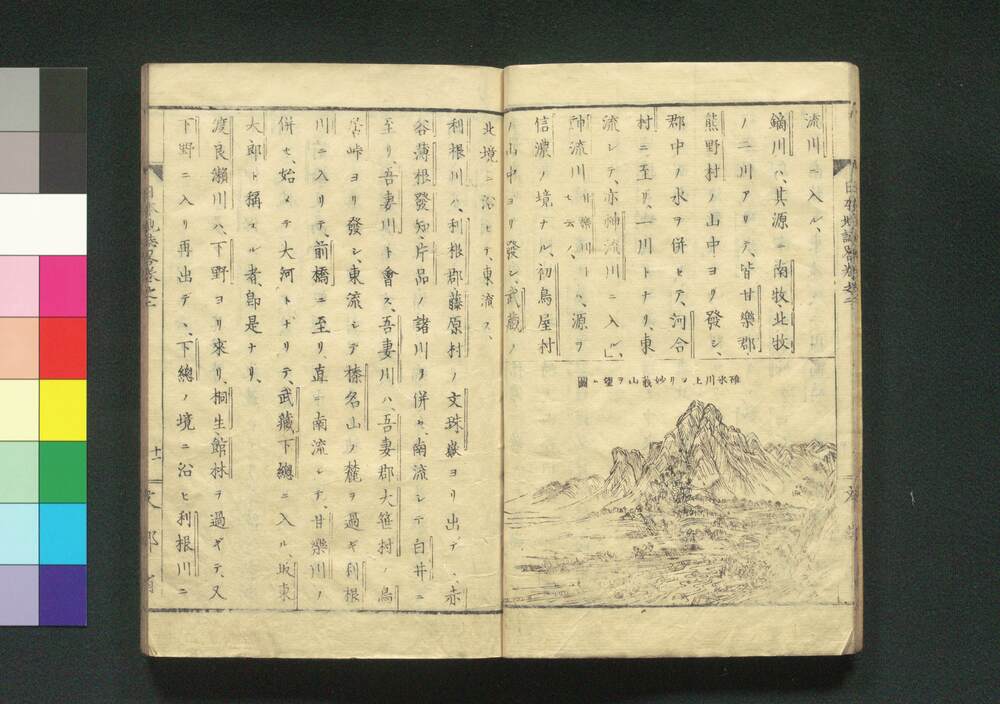 流川ニ入ル、
鏑川ハ、其源、南牧、北牧
ノ二川アリテ、皆甘樂郡
熊野村ノ山中ヨリ發シ、
郡中ノ水ヲ併セテ、河合
村ニ至リ、一川トナリ、東
流シテ、亦神流川ニ入ル、
神流川ハ、源ヲ
信濃ノ境ナル、初鳥屋村
ノ山中ヨリ發シ、武藏ノ
碓氷川上ヨリ妙義山ヲ望ム圖
北境ニ沿ヒテ、東流ス、
利根川ハ、利根郡藤原村ノ文珠嶽ヨリ出デ、赤
谷、薄根、發知、片品ノ諸川ヲ併セ、南流シテ白井ニ
至リ、吾妻川ト會ス、吾妻川ハ、吾妻郡大笹村ノ鳥
居峠ヨリ發シ、東流シテ榛名山ノ麓ヲ過ギ利根
川ニ入リテ、前橋ニ至リ、直ニ南流シテ、甘樂川ノ
併セ、始メテ大河トナリテ、武藏下總ニ入ル、坂東
太郎ト稱スル者、卽是ナリ、
渡良瀬川ハ、下野ヨリ來リ、桐生、館林ヲ過ギテ、又
下野ニ入リ再出デヽ、下總ノ境ニ沿ヒ利根川ニ
日本地誌略卷之二
十一
文部省